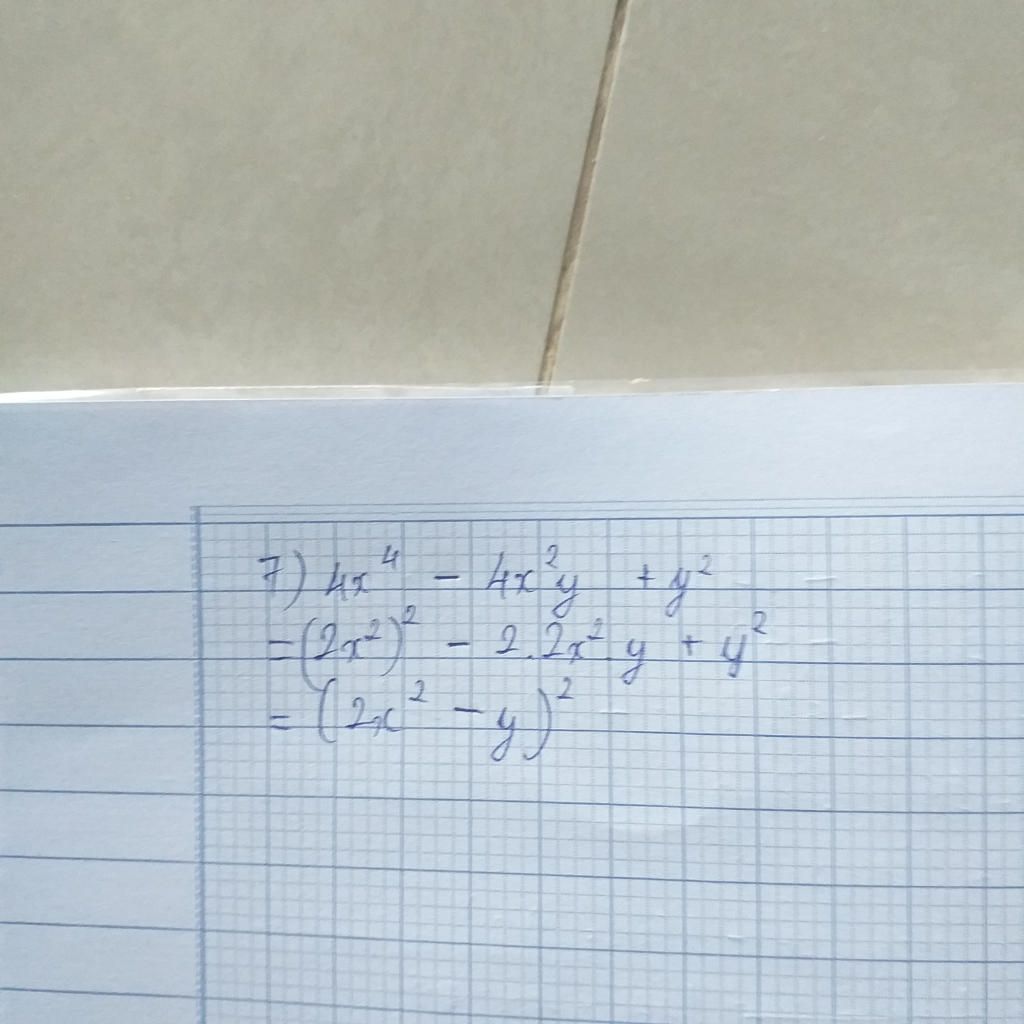 7) 4x⁴ - 4x²y + y²
= (2x²)² - 2.2x² y + y²
= (2x² - y)²